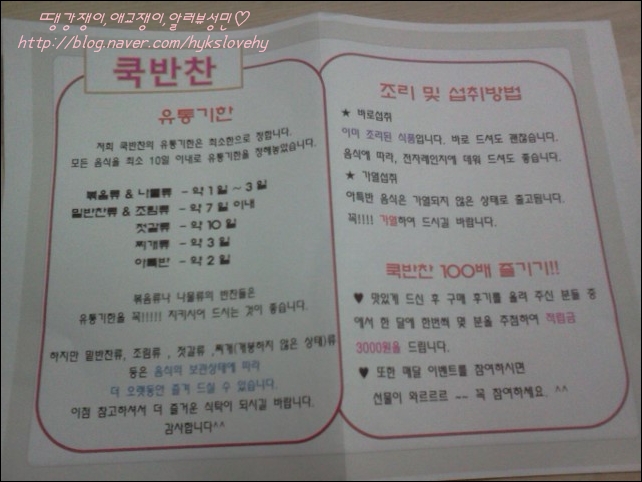 땡강쟁이,애교쟁이,알러뷰성민♡
http://blog.naver.com/hykslovehy
쿡반찬
유통기한
저희 쿡반찬의 유통기한은 최소한으로 정합니다.
모든 음식을 최소 10일 이내로 유통기한을 정해놓았습니다.
볶음류 & 나물류 - 약 1일 ~ 3일
밑반찬류 & 조림류 - 약 7일 이내
젓갈류 - 약 10일
찌개류 - 약 3일
아특반 - 약 2일
볶음류나 나물류의 반찬들은
유통기한을 꼭!!!!! 지키시어 드시는 것이 좋습니다.
하지만 밑반찬류, 조림류 , 젓갈류 ,찌개(개봉하지 않은 상태)류
등은 음식의 보관상태에 따라
더 오랫동안 즐겨 드실 수 있습니다.
이점 참고하셔서 더 즐거운 식탁이 되시길 바랍니다.
감사합니다^^
조리 및 섭취방법
★ 바로섭취
이미 조리된 식품입니다. 바로 드셔도 괜찮습니다.
음식에 따라, 전자레인지에 데워 드셔도 좋습니다.
★ 가열섭취
아특반 음식은 가열되지 않은 상태로 출고됩니다.
꼭!!!! 가열하여 드시길 바랍니다.
쿡반찬 100배 즐기기!!
♥ 맛있게 드신 후 구매 후기를 올려 주신 분들 중
에서 한 달에 한번씩 몇 분을 추첨하여 적립금
3000원을 드립니다.
♥ 또한 매달 이벤트를 참여하시면
선물이 와르르르 ~~ 꼭 참여하세요. ^^